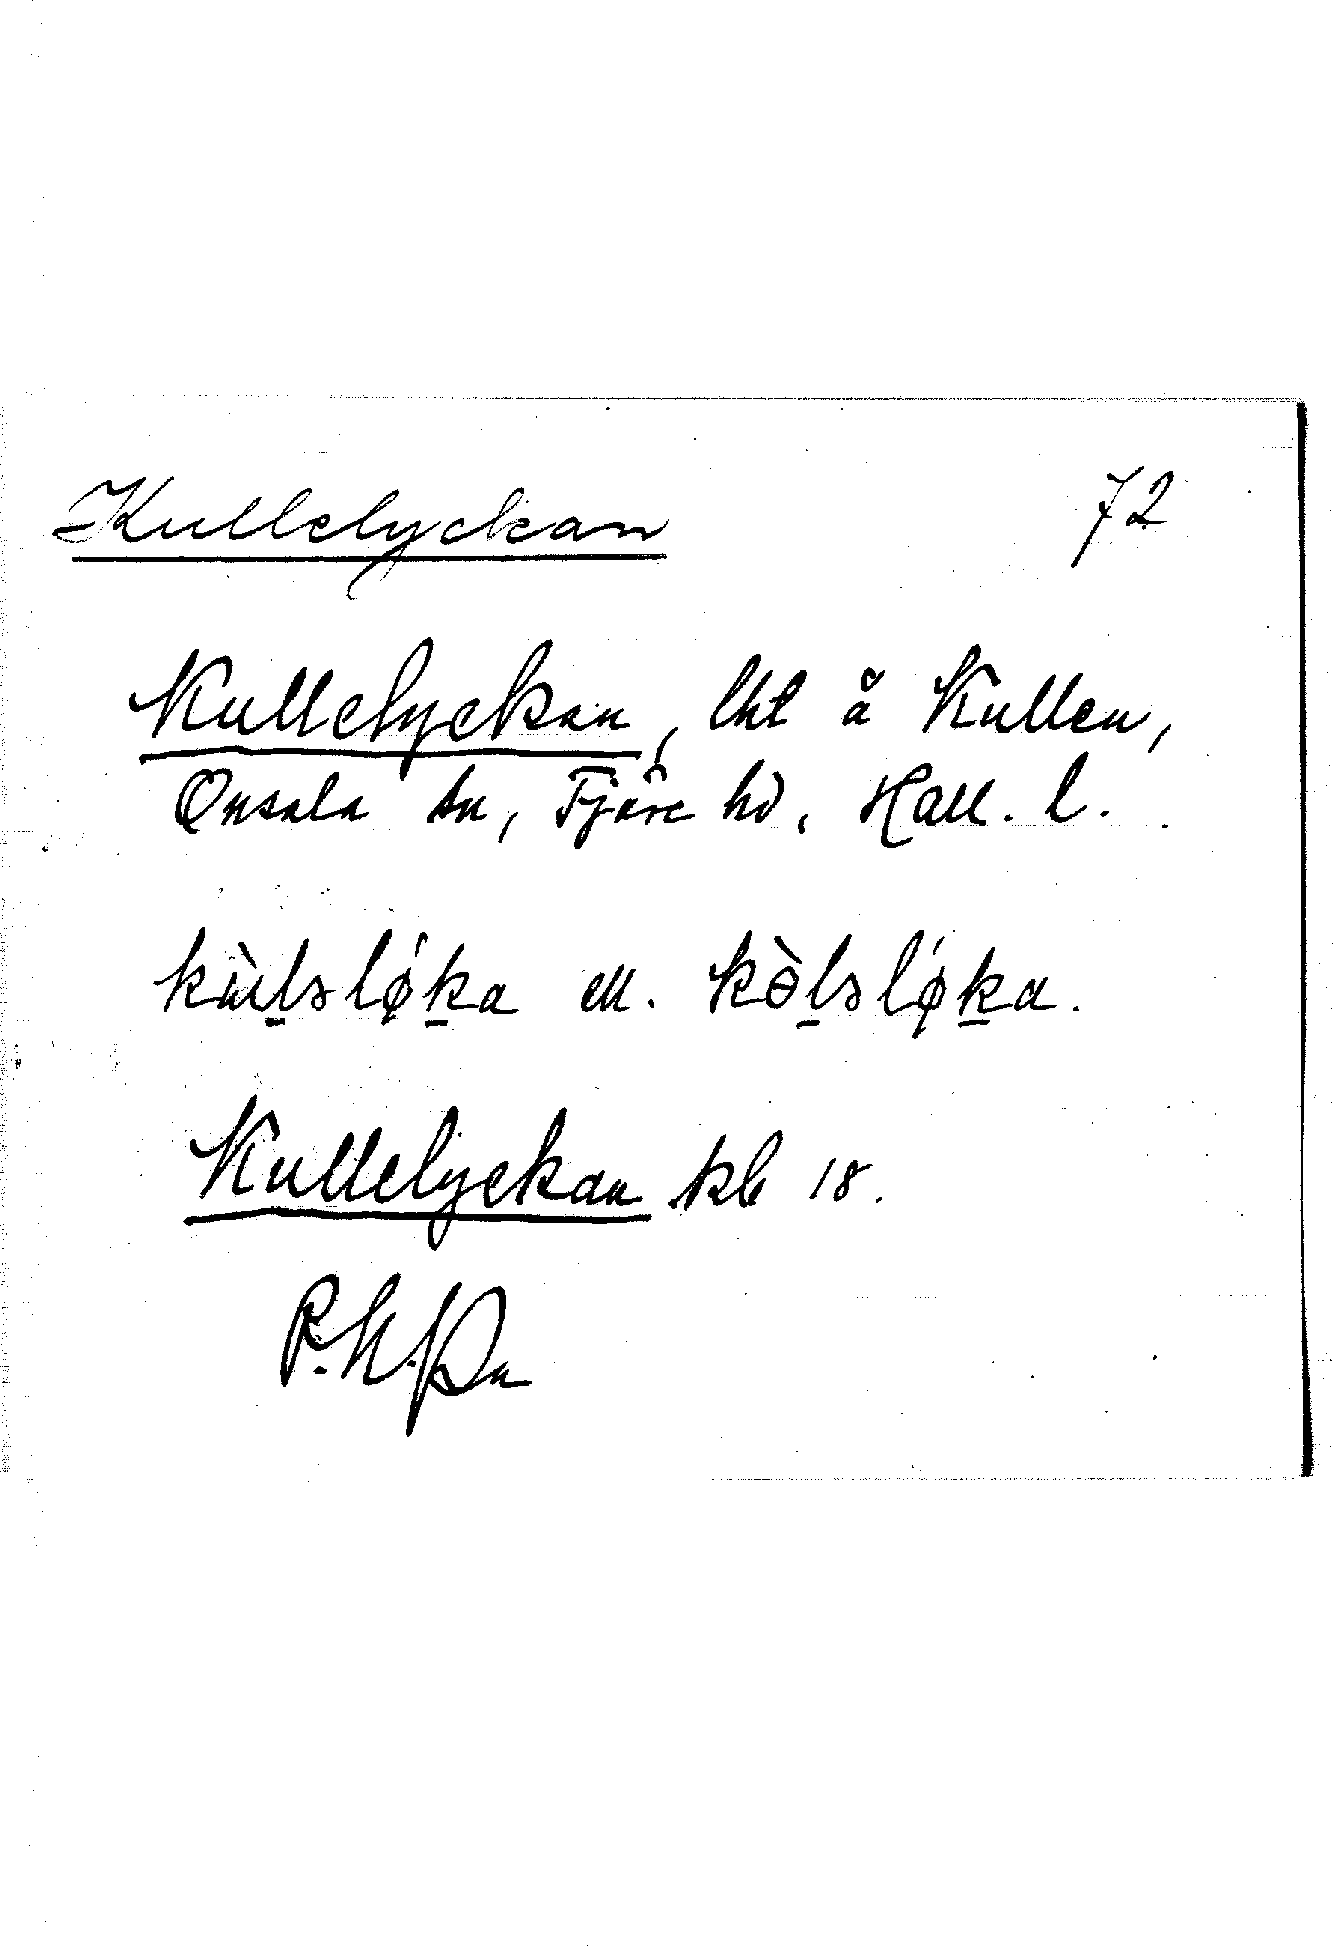 Kullelyckan 72
Kullelyckan, lht å Kullen,
Onsala sn, Fjäre hd, Hall. l.
kùl̠sløk̠a ell. kòl̠sløk̠a.
Kullelyckan kb 18.
P.N.Pn